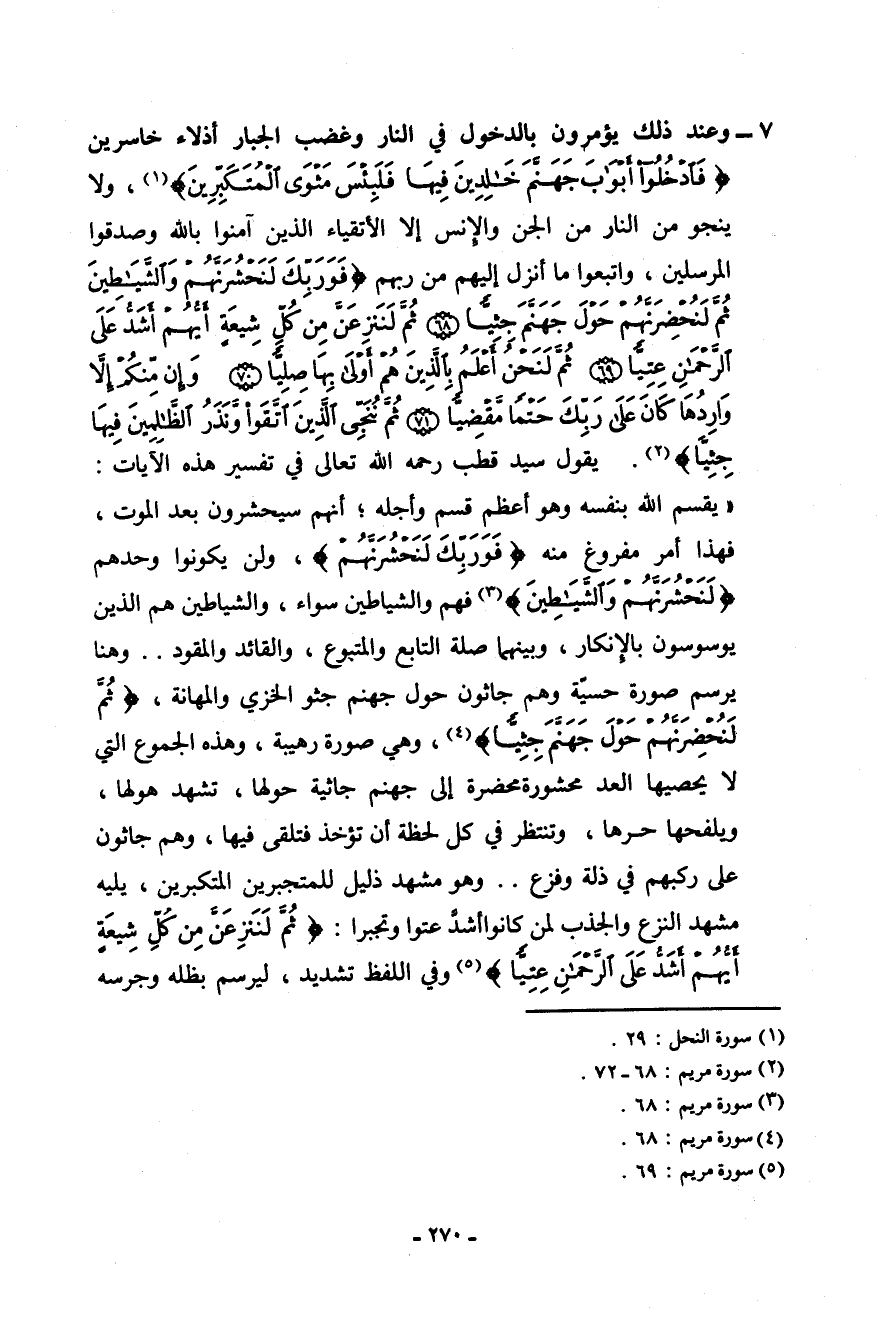 ٧ ــ وعند ذلك يؤمرون بالدخول في النار وغضب الجبار أذلاء خاسرين
﴿ فَٱدۡخُلُوٓاْ أَبۡوَٰبَ جَهَنَّمَ خَٰلِدِينَ فِيهَا فَلَبِئۡسَ مَثۡوَى ٱلۡمُتَكَبِّرِينَ﴾(١) ، ولا
ينجو من النار من الجن والإنس إلا الأتقياء الذين آمنوا بالله وصدقوا
المرسلين ، واتبعوا ما أنزل إليهم من ربهم ﴿فَوَرَبِّكَ لَنَحۡشُرَنَّهُمۡ وَٱلشَّيَٰطِينَ
ثُمَّ لَنُحۡضِرَنَّهُمۡ حَوۡلَ جَهَنَّمَ جِثِيًّا ٦٨ ثُمَّ لَنَنزِعَنَّ مِن كُلِّ شِيعَةٍ أَيُّهُمۡ أَشَدُّ عَلَى
ٱلرَّحۡمَٰنِ عِتِيًّا ٦٩ ثُمَّ لَنَحۡنُ أَعۡلَمُ بِٱلَّذِينَ هُمۡ أَوۡلَىٰ بِهَا صِلِيًّا ٧٠ وَإِن مِّنكُمۡ إِلَّا
وَارِدُهَا كَانَ عَلَىٰ رَبِّكَ حَتۡمًا مَّقۡضِيًّا ٧١ ثُمَّ نُنَجِّي ٱلَّذِينَ ٱتَّقَواْ وَّنَذَرُ ٱلظَّٰلِمِينَ فِيهَا
جِثِيًّا﴾(٢) . يقول سيد قطب رحمه الله تعالى في تفسير هذه الآيات :
« يقسم الله بنفسه وهو أعظم قسم وأجله ؛ أنهم سيحشرون بعد الموت ،
فهذا أمر مفروغ منه ﴿ فَوَرَبِّكَ لَنَحۡشُرَنَّهُمۡ ﴾ ، ولن يكونوا وحدهم
﴿لَنَحۡشُرَنَّهُمۡ وَٱلشَّيَٰطِينَ﴾(٣) فهم والشياطين سواء ، والشياطين هم الذين
يوسوسون بالإنكار ، وبينهما صلة التابع والمتبوع ، والقائد والمقود .. وهنا
يرسم صورة حسيّة وهم جاثون حول جهنم جثو الخزي والمهانة ، ﴿ ثُمَّ
لَنُحۡضِرَنَّهُمۡ حَوۡلَ جَهَنَّمَ جِثِيًّا﴾(٤) ، وهي صورة رهيبة ، وهذه الجموع التي
لا يحصيها العد محشورة محضرة إلى جهنم جاثية حولها ، تشهد هولها ،
ويلفحها حرها ، وتنتظر في كل لحظة أن تؤخذ فتلقى فيها ، وهم جاثون
على ركبهم في ذلة وفزع .. وهو مشهد ذليل للمتجبرين المتكبرين ، يليه
مشهد النزع والجذب لمن كانوا أشدَّ عتوا وتجبرا : ﴿ ثُمَّ لَنَنزِعَنَّ مِن كُلِّ شِيعَةٍ
أَيُّهُمۡ أَشَدُّ عَلَى ٱلرَّحۡمَٰنِ عِتِيًّا ﴾(٥) وفي اللفظ تشديد ، ليرسم بظله وجرسه
(١) سورة النحل : ٢٩ .
(٢) سورة مريم : ٦٨ ـ ٧٢ .
(٣) سورة مريم : ٦٨ .
(٤) سورة مريم : ٦٨ .
(٥) سورة مريم : ٦٩ .
- ٢٧٠ -